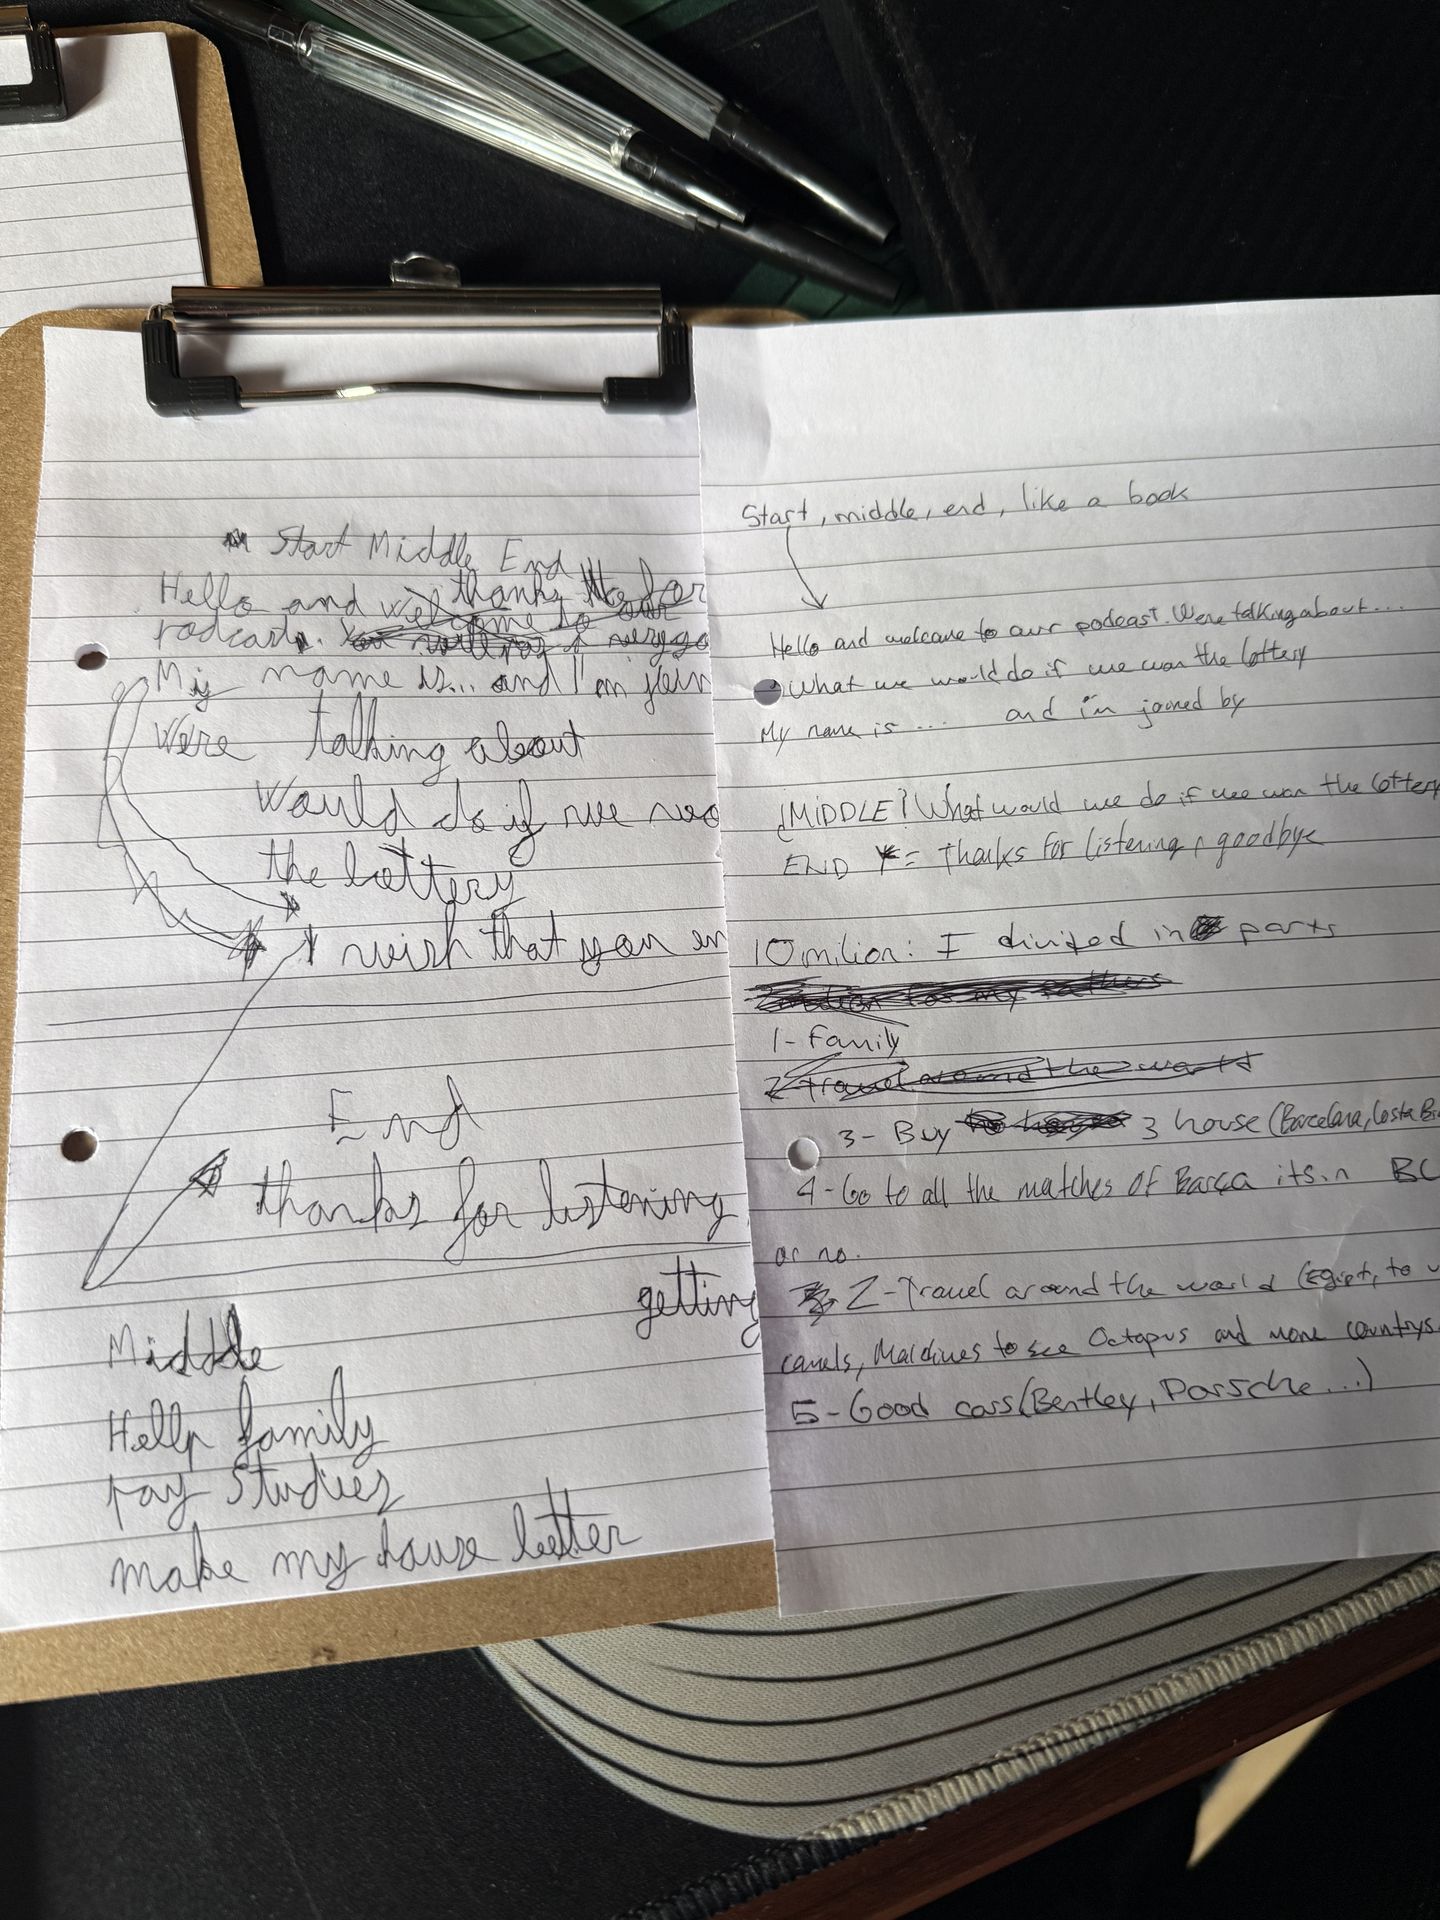 Start Middle End
Hello and welcome to our thanks for
Podcast.
My name is... and I'm join
We're talking about
Would do if we wo
the lottery
I wish that you en
End
thanks for listening
getting
Middle
Help family
Pay Studies
make my house better
Start, middle, end, like a book
Hello and welcome to our podcast. We're talking about...
What we would do if we won the lottery
My name is ... and i'm joined by
¿MIDDLE? What would we do if we won the lottery
END = Thanks for listening, goodbye
10 milion: I divided in parts
2 milion for my fathers
1- Family
2- Travel around the world
3- Buy 3 house (Barcelona, Costa Br
4- Go to all the matches of Barça its in BC
or no.
2- Travel around the world (Egipt, to
camels, Maldines to see Octopus and more countrys
5- Good cars (Bentley, Porsche...)